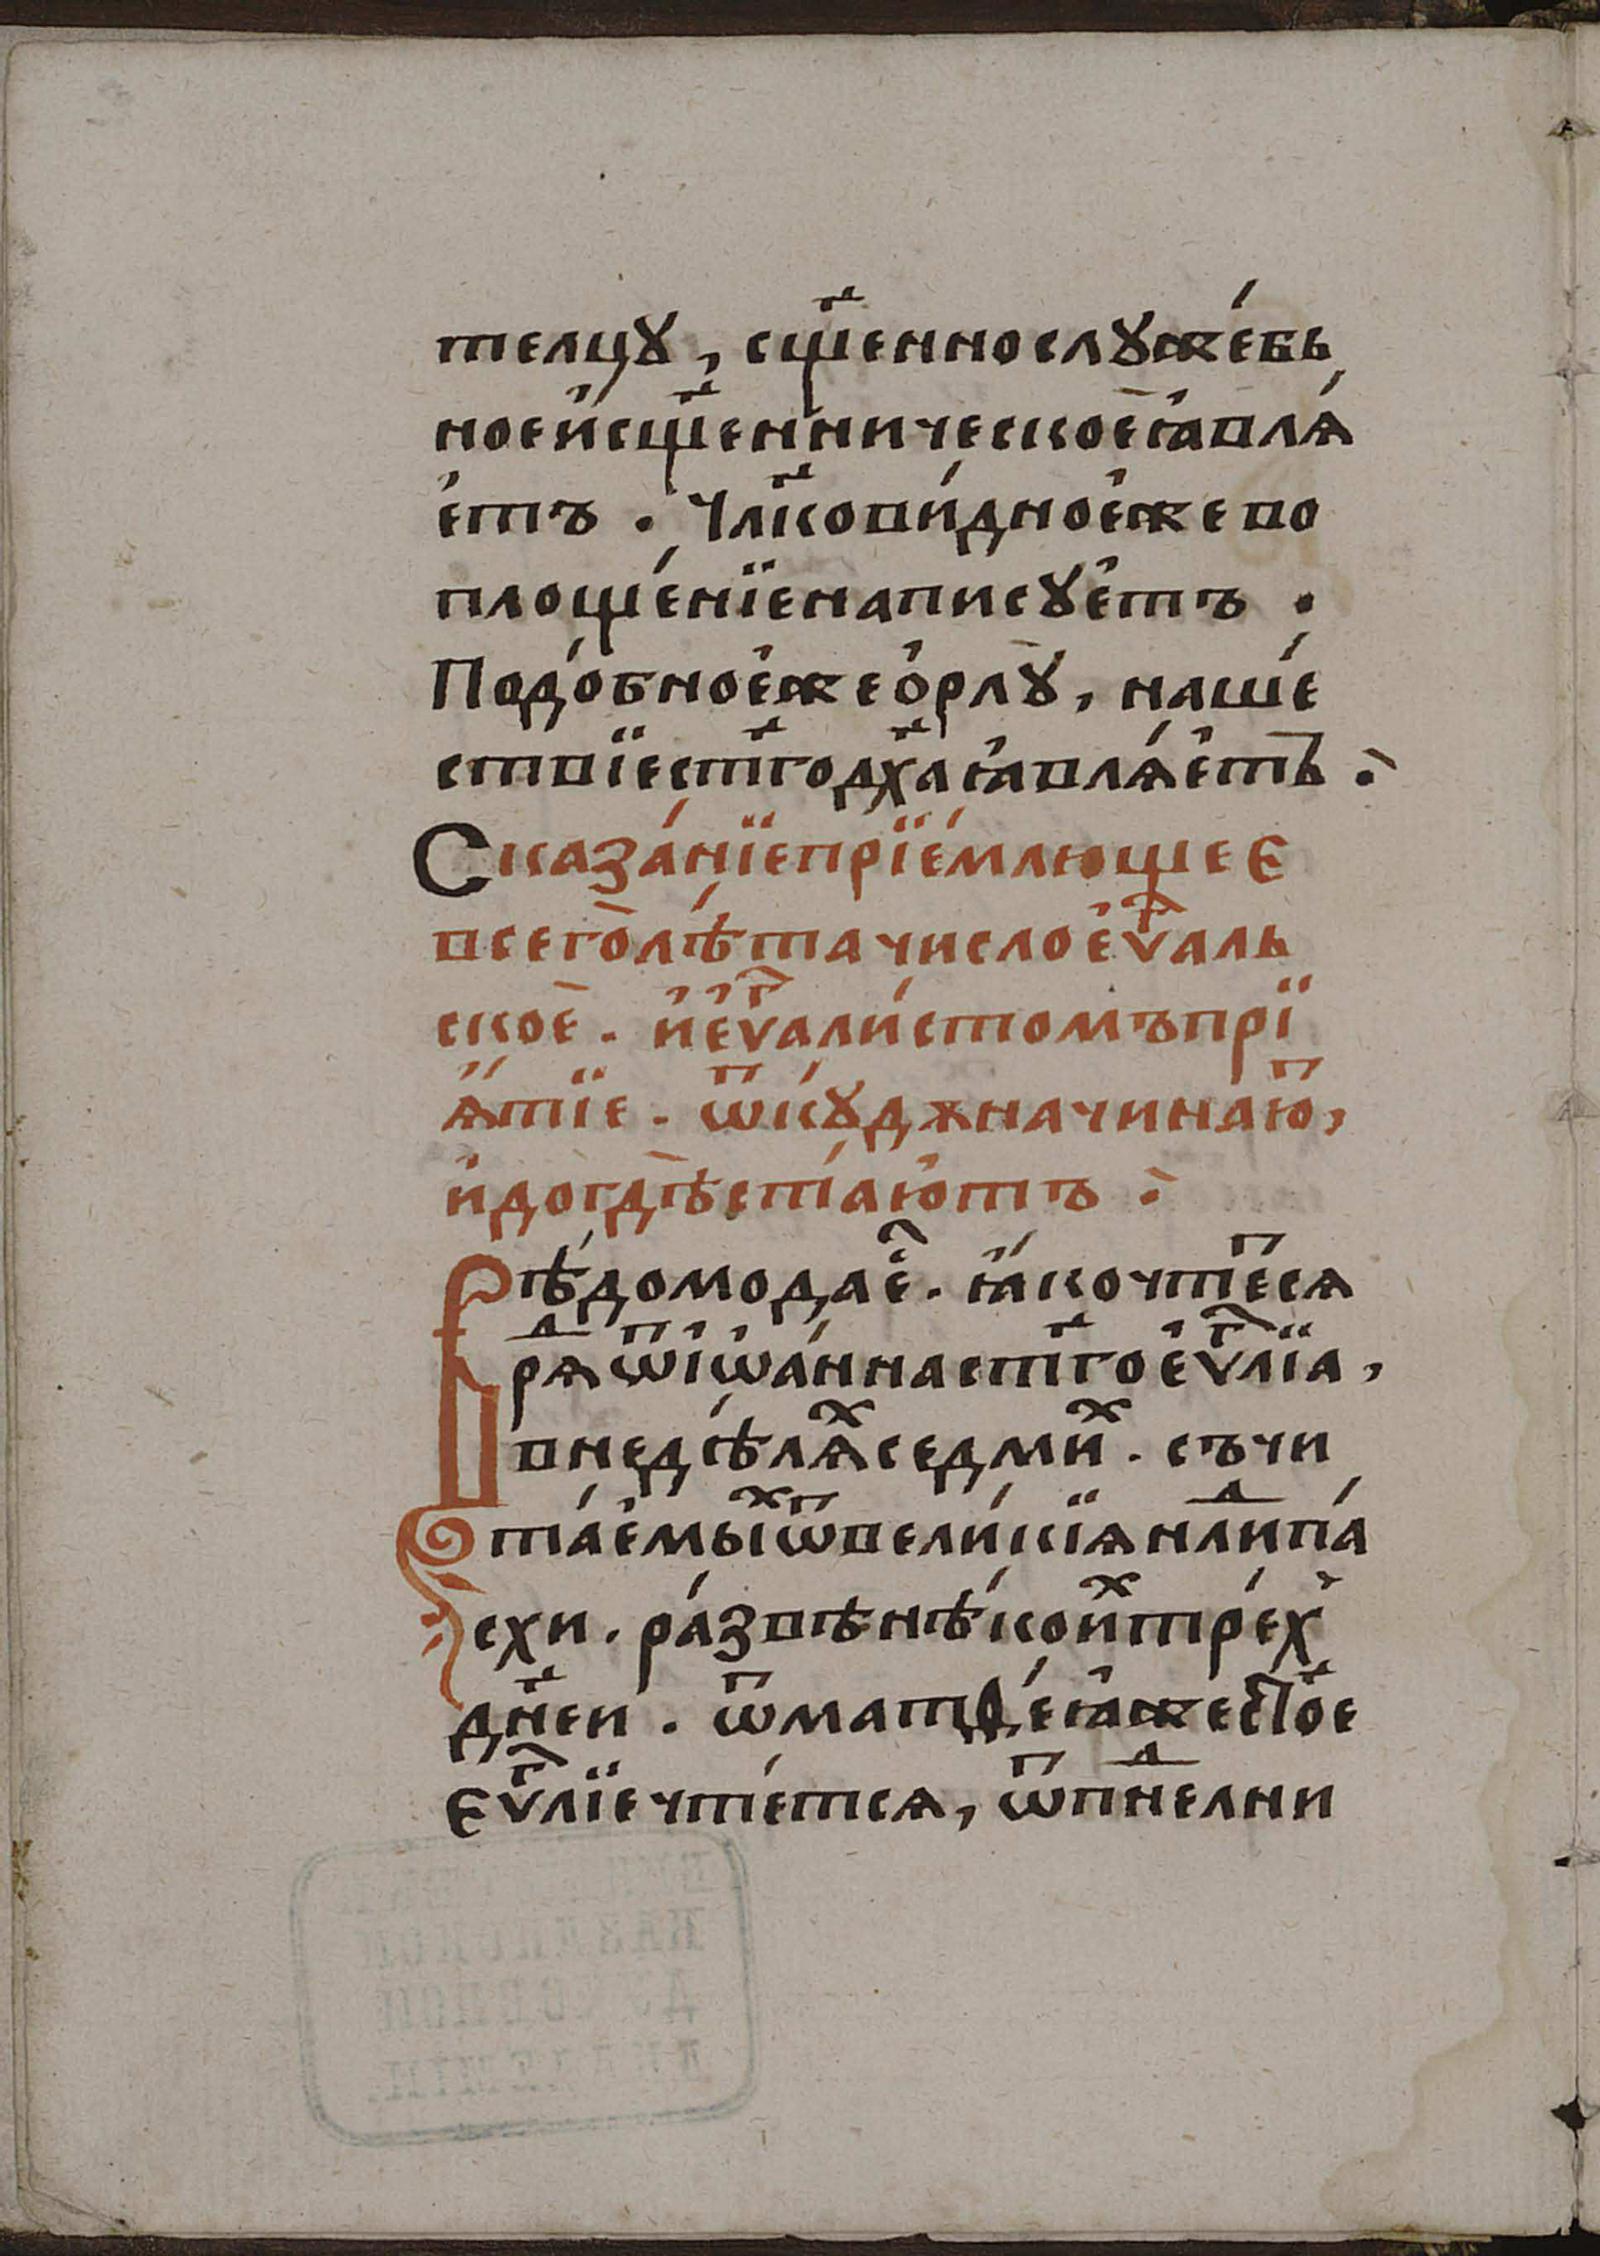 телцꙋ, сщ҃еннослꙋже́бь
ное и҆ сщ҃е́нническое ꙗ҆влѧ́
е҆тъ. Чл҃кови́дное же во
площе́нїе написꙋетъ.
Подо́бное же ѻ҆рлꙋ̀, наше́
ствїе ст҃го дх҃а ꙗ҆влѧ́етъ.
Сказа́нїе прїе́млющеє
всегѡ̀ лѣ́та число є҆ѵⷢ҇аль
ское. и҆ є҆ѵⷢ҇али́стомъ прї
ѧ҆́тїе. ѿкꙋ́дꙋ начина́юⷮ,
и҆ до гдѣ̀ ста́ютъ.
Вѣ́домо да е҆̑. ꙗ҆́ко чте́ⷮсѧ
рѧⷣ ѿ і҆ѡа́нна ст҃го є҆ѵⷢ҇лїа,
в недѣ́лѧⷯ седми́ⷯ. съчи
та́емыⷯ ѿ вели́кїѧ нⷣли па́
схи. ра́звѣ нѣ́коиⷯ тре́хъ
дн҃еи. ѿ матѳе́ꙗ же ст҃ое
є҆ѵⷢ҇лїе чте́тсѧ, ѿ пнⷣелни